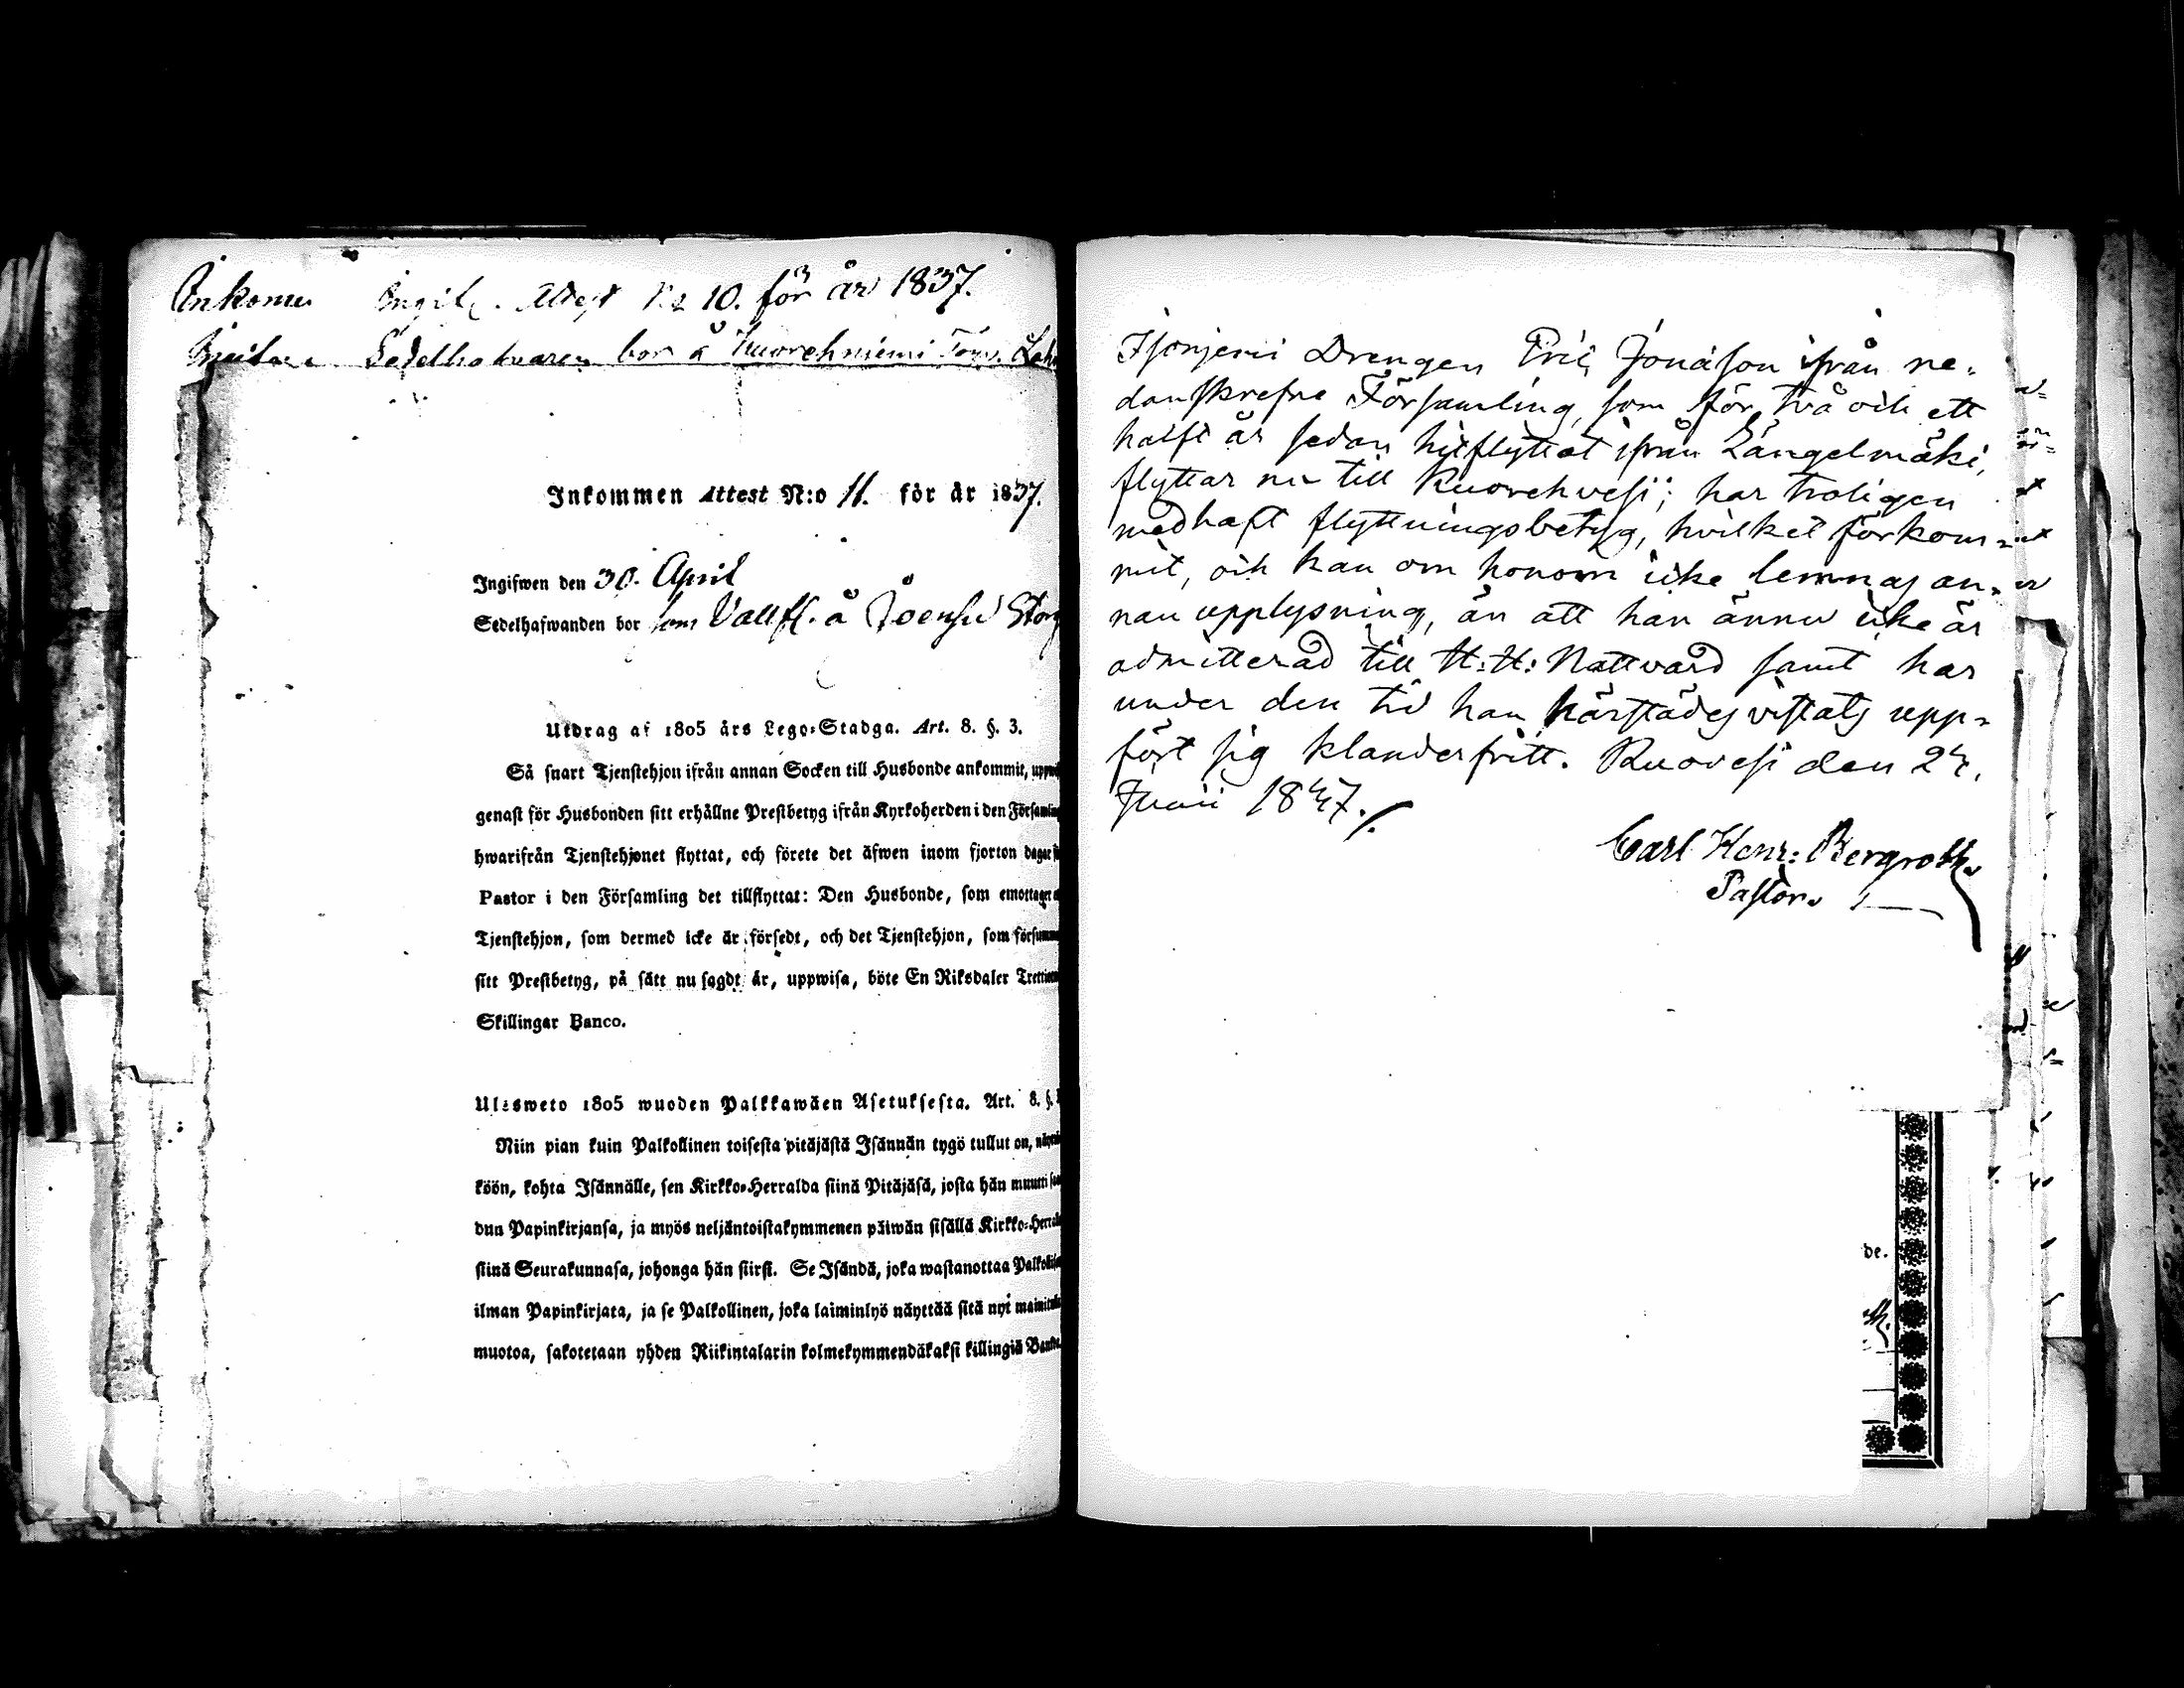 Inkommen Attest No 10. för år 1837.
Sedelhafvaren bor å Kuorehniemi
Inkommen Attest N:o 11. för år 1837.
Ingifwen den 30. April
Sedelhafwanden bor som Vallfl. å Joensu
Utdrag af 1805 års Lego-Stadga. Art. 8. §. 3.
Så snart Tjenstehjon ifrån annan Socken till Husbonde ankommit,
genast för Husbonden sitt erhållne Prestbetyg ifrån Kyrkoherden i den
hwarifrån Tjenstehjonet flyttat, och förete det äfwen inom fjorton dagar
Pastor i den Församling det tillflyttat: Den Husbonde, som
Tjenstehjon, som dermed icke är försedt, och det Tjenstehjon, som
sitt Prestbetyg, på sätt nu sagdt är, uppwisa, böte En Riksdaler
Skillingar Banco.
Ulosweto 1805 wuoden Palkkawäen Asetuksesta. Art. 8. §.
Niin pian kuin Palkollinen toisesta pitäjästä Isännän tygö tullut on,
köön, kohta Isännälle, sen Kirkko-Herralda siinä Pitäjäsä, josta hän muutti
dun Papinkirjansa, ja myös neljäntoistakymmenen päiwän sisällä
siinä Seurakunnasa, johonga hän siirsi. Se Isändä, joka wastanottaa
ilman Papinkirjata, ja se Palkollinen, joka laiminlyö näyttää sitä nyt
muotoa, sakotetaan yhden Riikintalarin kolmekymmendäkaksi killingiä
Drengen Eric Jonasson ifrån ne-
danskrefne Församling, som för två och ett
halft år sedan hitflyttat ifrån Längelmäki,
flyttar nu till Kuorehvesi; har troligen
medhaft flyttningsbetyg, hvilket förkom-
mit, och kan om honom icke lemnas an-
nan upplysning, än att han ännu icke är
admitterad till H:H: Nattvard samt har
under den tid han härstädes vistats upp-
fört sig klanderfritt. Ruovesi den 24.
Junii 1847./.
Carl Henr: Bergroth.
Pastor.
de.